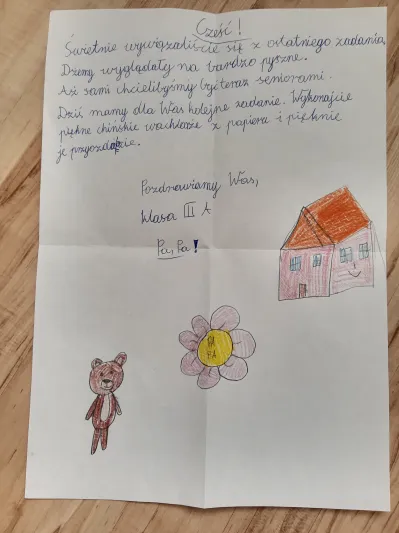 Cześć!
Świetnie wywiązaliście się z ostatniego zadania.
Dżemy wyglądały na bardzo pyszne.
Aż sami chcielibyśmy być teraz seniorami.
Dziś mamy dla Was kolejne zadanie. Wykonajcie
piękne chińskie wachlarze z papieru i pięknie
je przyozdabcie.
Pozdrawiamy Was,
klasa III A
Pa, Pa!
PA
PA